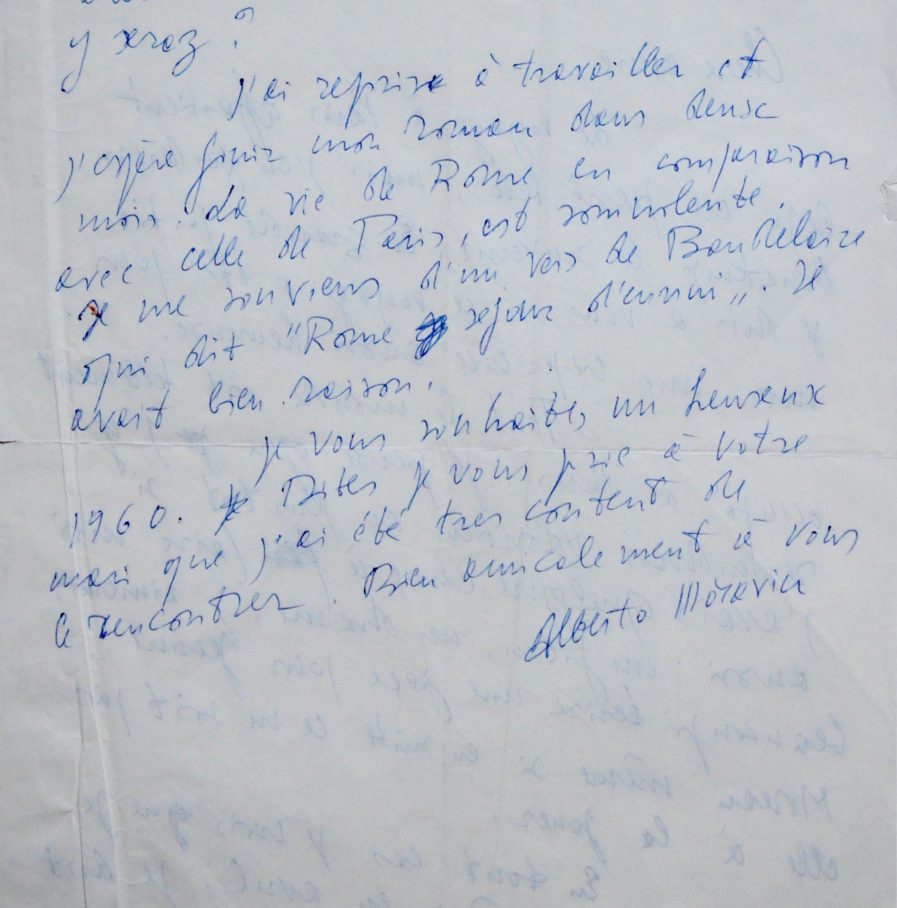 y serez?
j'ai repris à travailler et
j'espère finir mon roman dans deux
mois. La vie de Rome en comparaison
avec celle de Paris, est somnolente.
Je me souviens d'un vers de Baudelaire
qui dit "Rome séjour d'ennui". Il
avait bien raison.
je vous souhaites un heureux
1960. Dites je vous prie à votre
mari que j'ai été tres content de
le rencontrer. Bien amicalement à vous
Alberto Moravia